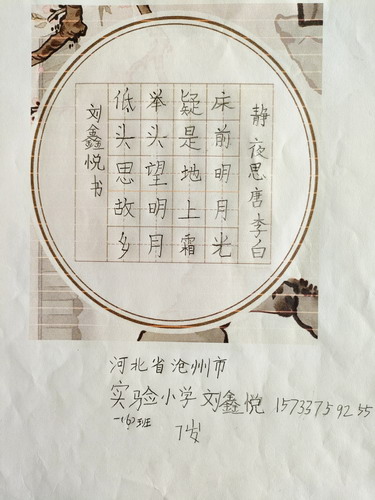 静夜思唐李白
床前明月光
疑是地上霜
举头望明月
低头思故乡
刘鑫悦书
河北省沧州市
实验小学刘鑫悦 15733759255
一(6)班
7岁